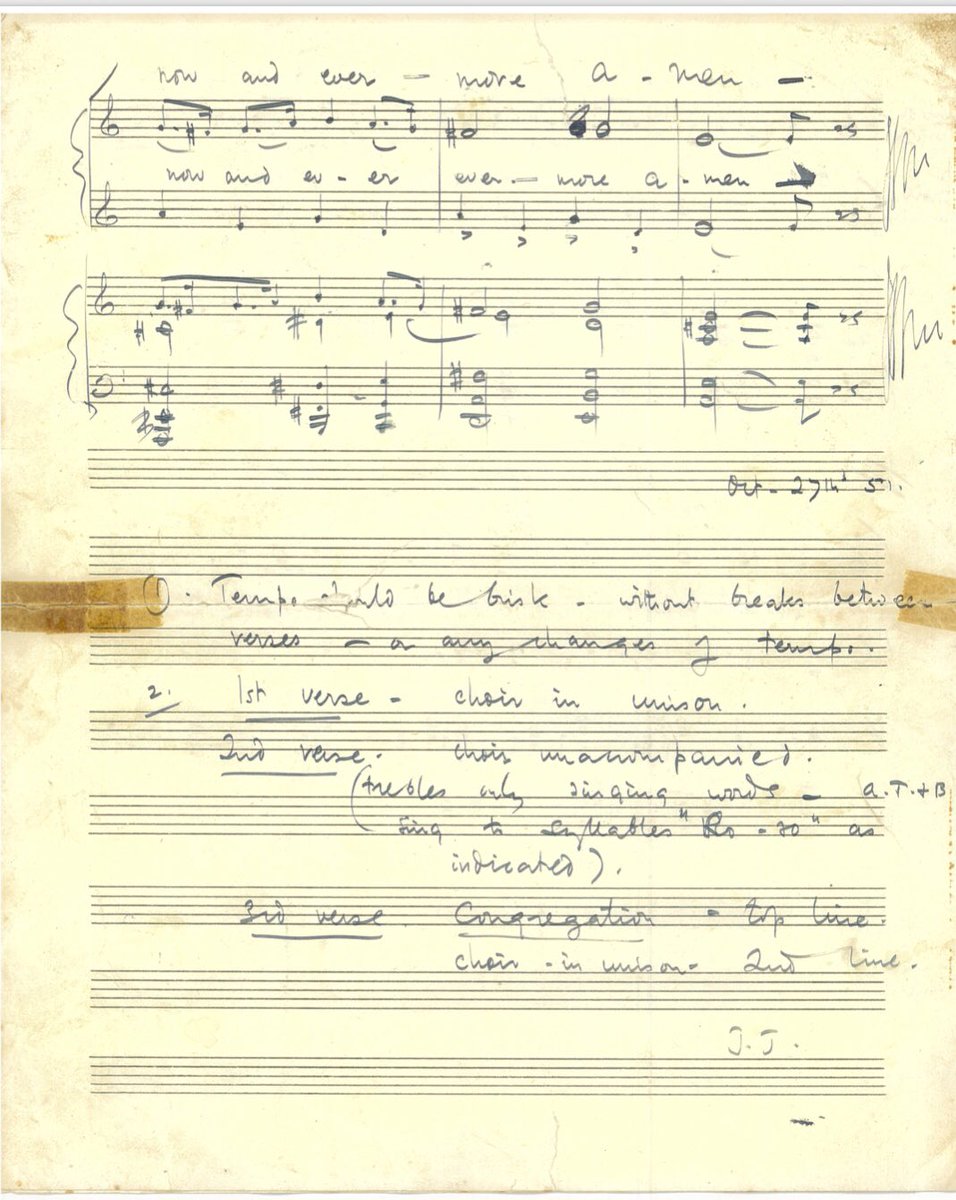 now and ever — more a - men —
now and ev - er ever — more a - men
Oct - 27th 51.
1. Tempo should be brisk - without breaks between
verses — or any changes of tempo.
2. 1st verse - choir in unison.
2nd verse. choir unaccompanied.
(trebles only singing words - A.T. + B
sing to syllables " - " as
indicated).
3rd verse. Congregation - top line.
choir - in unison - 2nd line.
J.J.